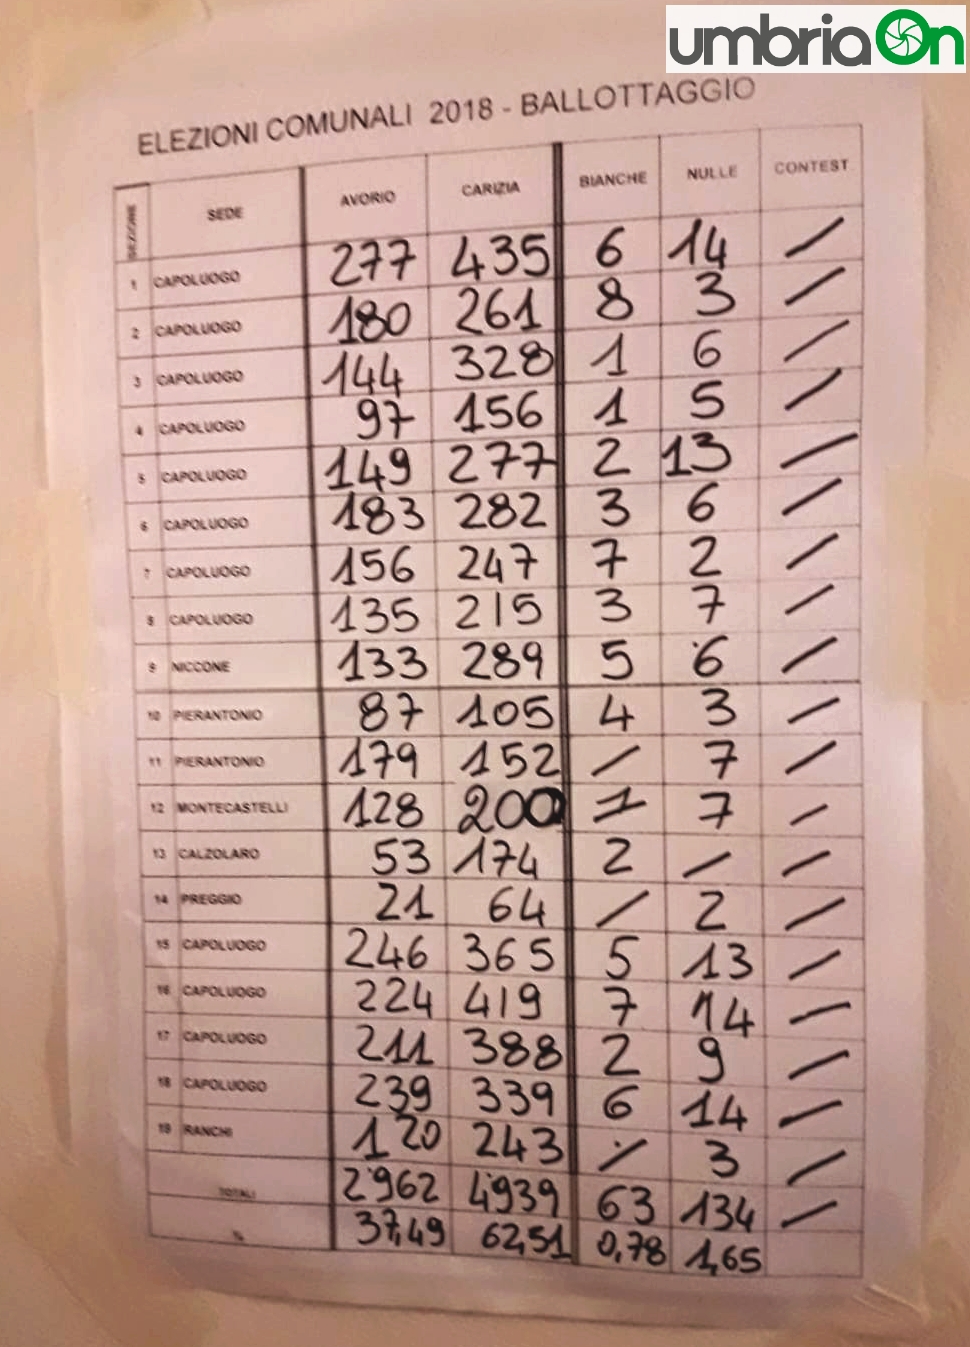 umbriaOn
ELEZIONI COMUNALI 2018 - BALLOTTAGGIO
SEZIONE SEDE AVORIO CARIZIA BIANCHE NULLE CONTEST
1 CAPOLUOGO 277 435 6 14 /
2 CAPOLUOGO 180 261 8 3 /
3 CAPOLUOGO 144 328 1 6 /
4 CAPOLUOGO 97 156 1 5 /
5 CAPOLUOGO 149 277 2 13 /
6 CAPOLUOGO 183 282 3 6 /
7 CAPOLUOGO 156 247 7 2 /
8 CAPOLUOGO 135 215 3 7 /
9 NICCONE 133 289 5 6 /
10 PIERANTONIO 87 105 4 3 /
11 PIERANTONIO 179 152 / 7 /
12 MONTECASTELLI 128 200 1 7 /
13 CALZOLARO 53 174 2 / /
14 PREGGIO 21 64 / 2 /
15 CAPOLUOGO 246 365 5 13 /
16 CAPOLUOGO 224 419 7 14 /
17 CAPOLUOGO 211 388 2 9 /
18 CAPOLUOGO 239 339 6 14 /
19 RANCHI 120 243 / 3 /
TOTALI 2962 4939 63 134 /
% 37,49 62,51 0,78 1,65